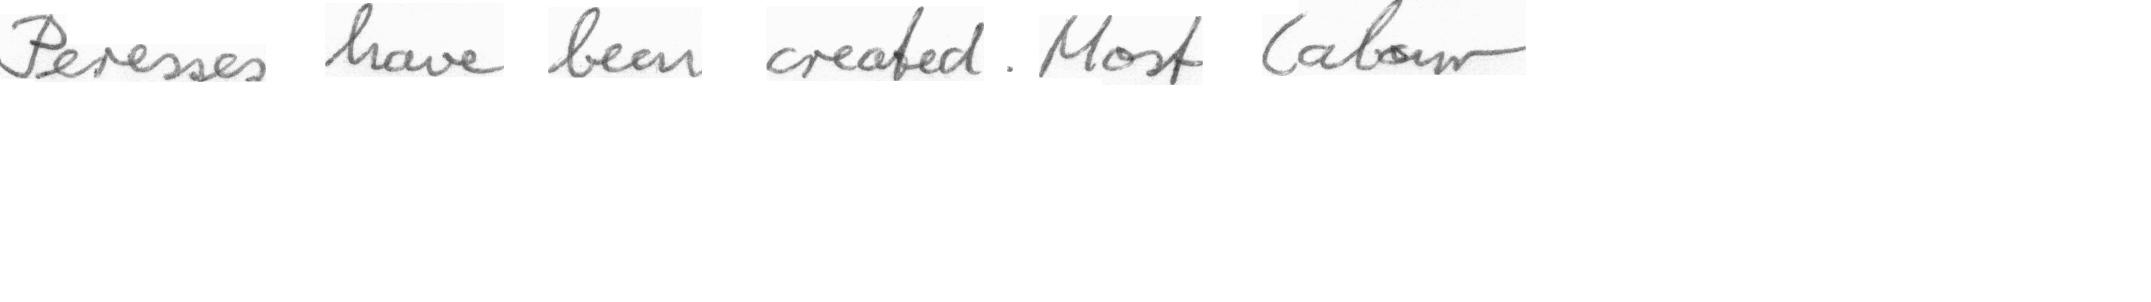 Peresses have been created. Most Labour